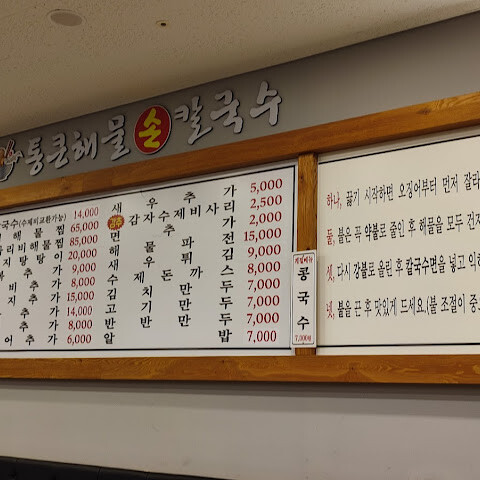 통큰해물손칼국수
국수(수제비교환가능) 14,000
해물찜 65,000
해물찜 85,000
탕탕이 20,000
추가 9,000
비추가 8,000
지추가 15,000
추가 14,000
추가 8,000
어추가 6,000
새우추가 5,000
감자수제비사리 2,500
면추가 2,000
해물파전 15,000
새우튀김 9,000
수제돈까스 8,000
김치만두 7,000
고기만두 7,000
반반만두 7,000
알밥 7,000
계절메뉴
콩국수
7,000원
하나, 끓기 시작하면 오징어부터 먼저 잘라
둘, 불은 꼭 약불로 줄인 후 해물을 모두 건져
셋, 다시 강불로 올린 후 칼국수면을 넣고 익혀
넷, 불을 끈 후 맛있게 드세요.(불 조절이 중요